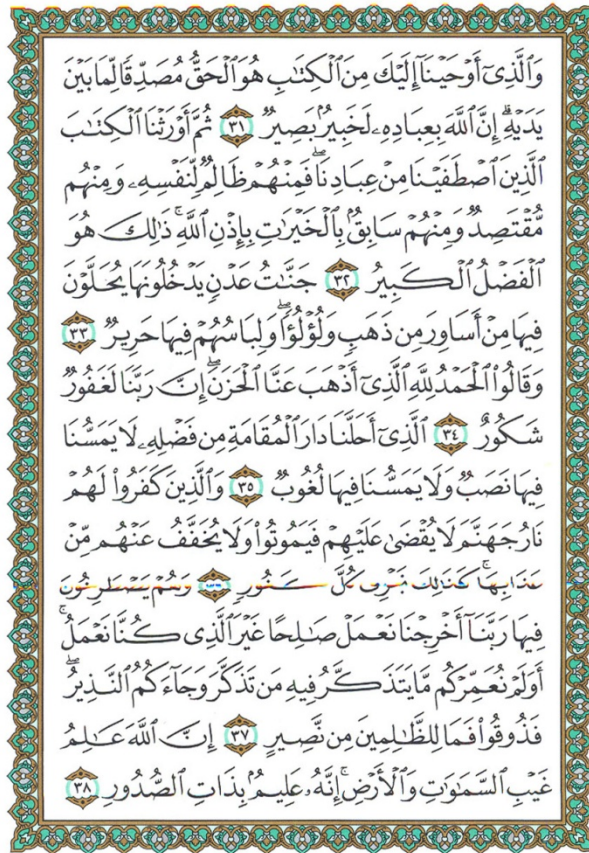 وَٱلَّذِىٓ أَوۡحَيۡنَآ إِلَيۡكَ مِنَ ٱلۡكِتَٰبِ هُوَ ٱلۡحَقُّ مُصَدِّقٗا لِّمَا بَيۡنَ
يَدَيۡهِۗ إِنَّ ٱللَّهَ بِعِبَادِهِۦ لَخَبِيرُۢ بَصِيرٞ ٣١ ثُمَّ أَوۡرَثۡنَا ٱلۡكِتَٰبَ
ٱلَّذِينَ ٱصۡطَفَيۡنَا مِنۡ عِبَادِنَاۖ فَمِنۡهُمۡ ظَالِمٞ لِّنَفۡسِهِۦ وَمِنۡهُم
مُّقۡتَصِدٞ وَمِنۡهُمۡ سَابِقُۢ بِٱلۡخَيۡرَٰتِ بِإِذۡنِ ٱللَّهِۚ ذَٰلِكَ هُوَ
ٱلۡفَضۡلُ ٱلۡكَبِيرُ ٣٢ جَنَّٰتُ عَدۡنٖ يَدۡخُلُونَهَا يُحَلَّوۡنَ
فِيهَا مِنۡ أَسَاوِرَ مِن ذَهَبٖ وَلُؤۡلُؤٗاۖ وَلِبَاسُهُمۡ فِيهَا حَرِيرٞ ٣٣
وَقَالُواْ ٱلۡحَمۡدُ لِلَّهِ ٱلَّذِىٓ أَذۡهَبَ عَنَّا ٱلۡحَزَنَۖ إِنَّ رَبَّنَا لَغَفُورٞ
شَكُورٌ ٣٤ ٱلَّذِىٓ أَحَلَّنَا دَارَ ٱلۡمُقَامَةِ مِن فَضۡلِهِۦ لَا يَمَسُّنَا
فِيهَا نَصَبٞ وَلَا يَمَسُّنَا فِيهَا لُغُوبٞ ٣٥ وَٱلَّذِينَ كَفَرُواْ لَهُمۡ
نَارُ جَهَنَّمَ لَا يُقۡضَىٰ عَلَيۡهِمۡ فَيَمُوتُواْ وَلَا يُخَفَّفُ عَنۡهُم مِّنۡ
عَذَابِهَاۚ كَذَٰلِكَ نَجۡزِى كُلَّ كَفُورٖ ٣٦ وَهُمۡ يَصۡطَرِخُونَ
فِيهَا رَبَّنَآ أَخۡرِجۡنَا نَعۡمَلۡ صَٰلِحًا غَيۡرَ ٱلَّذِى كُنَّا نَعۡمَلُۚ
أَوَلَمۡ نُعَمِّرۡكُم مَّا يَتَذَكَّرُ فِيهِ مَن تَذَكَّرَ وَجَآءَكُمُ ٱلنَّذِيرُۖ
فَذُوقُواْ فَمَا لِلظَّٰلِمِينَ مِن نَّصِيرٍ ٣٧ إِنَّ ٱللَّهَ عَٰلِمُ
غَيۡبِ ٱلسَّمَٰوَٰتِ وَٱلۡأَرۡضِۚ إِنَّهُۥ عَلِيمُۢ بِذَاتِ ٱلصُّدُورِ ٣٨